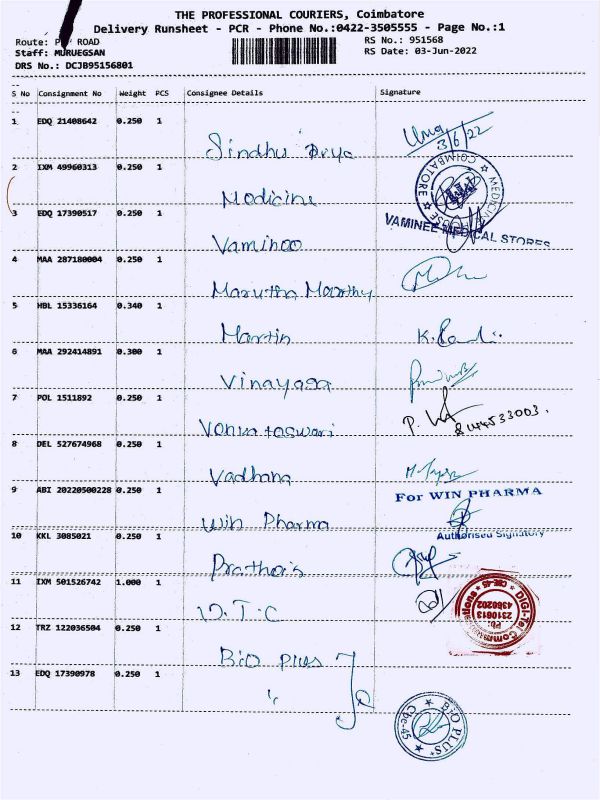 THE PROFESSIONAL COURIERS, Coimbatore
Delivery Runsheet - PCR - Phone No.:0422-3505555 - Page No.:1
Route: P ROAD
RS No.: 951568
Staff: MURUEGSAN
RS Date: 03-Jun-2022
DRS No.: DCJB95156801
S No Consignment No Weight PCS Consignee Details Signature
1 EDQ 21408642 0.250 1
3/6/22
Sindhu Priya
2 IXM 49960313 0.250 1
COIMBATORE
Medicine
3 EDQ 17390517 0.250 1
VAMINEE MEDICAL STORES
Vaminee
4 MAA 287180004 0.250 1
Marutha Moorthy
5 HBL 15336164 0.340 1
Martin
6 MAA 292414891 0.300 1
Vinayaga
7 POL 1511892 0.250 1
Venkateswari
8 DEL 527674968 0.250 1
Vadhana
9 ABI 20220500228 0.250 1
For WIN PHARMA
Win Pharma
Authorised Signatory
10 KKL 3085021 0.250 1
11 IXM 501526742 1.000 1
D.T.C
DIGI-Tel Communications
CBE-45
Ph:
2310613
4380202
12 TRZ 122036504 0.250 1
Bio Plus
13 EDQ 17390978 0.250 1
"
BIO PLUS
Cbe-45